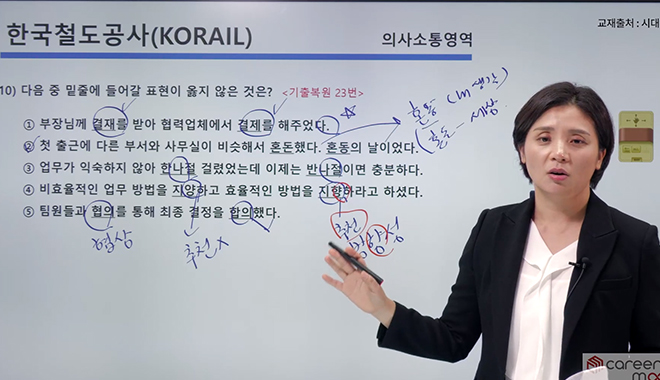 교재출처 : 시대
한국철도공사(KORAIL) 의사소통영역
10) 다음 중 밑줄에 들어갈 표현이 옳지 않은 것은? <기출복원 23번>
① 부장님께 결재를 받아 협력업체에서 결제를 해주었다.
② 첫 출근에 다른 부서와 사무실이 비슷해서 혼돈했다. 혼동의 날이었다.
③ 업무가 익숙하지 않아 한나절 걸렸었는데 이제는 반나절이면 충분하다.
④ 비효율적인 업무 방법을 지양하고 효율적인 방법을 지향하라고 하셨다.
⑤ 팀원들과 협의를 통해 최종 결정을 합의했다.
혼동 (내 생각)
혼돈 - 세상
협상
추천 X
추천
방향성
career